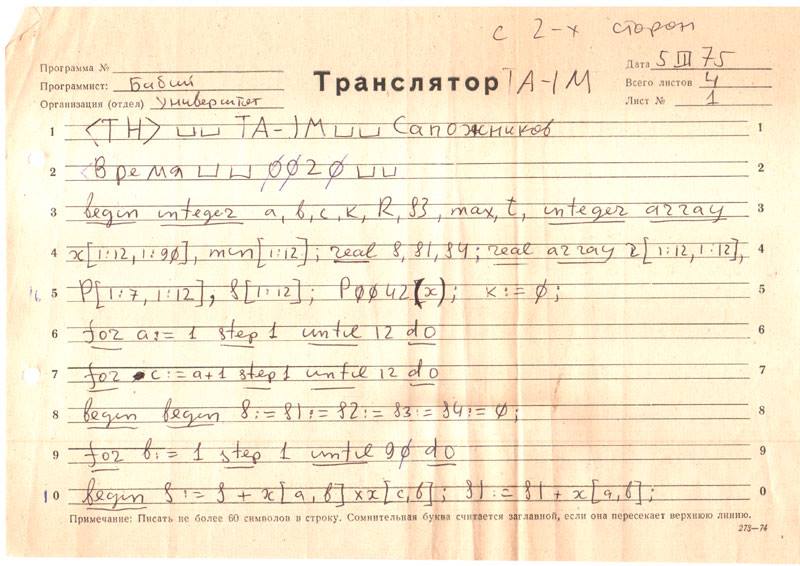 с 2-х сторон
Программа №
Программист: Бабий
Организация (отдел) Университет
Транслятор ТА-1М
Дата 5 III 75
Всего листов 4
Лист № 1
1 <ТН> ␣␣ ТА-1М ␣␣ Сапожников 1
2 <Время ␣␣ 0020 ␣␣ 2
3 begin integer a, b, c, k, R, S3, max, t, integer array 3
4 x[1:12, 1:90], min[1:12]; real S, S1, S4; real array r[1:12, 1:12], 4
5 P[1:7, 1:12], S[1:12]; P0042(x); k:=0; 5
6 for a:= 1 step 1 until 12 do 6
7 for c:= a+1 step 1 until 12 do 7
8 begin begin S:= S1:= S2:= S3:= S4:= 0; 8
9 for b:= 1 step 1 until 90 do 9
10 begin S:= S + x[a,b] × x[c,b]; S1:= S1 + x[a,b]; 0
Примечание: Писать не более 60 символов в строку. Сомнительная буква считается заглавной, если она пересекает верхнюю линию.
273—74